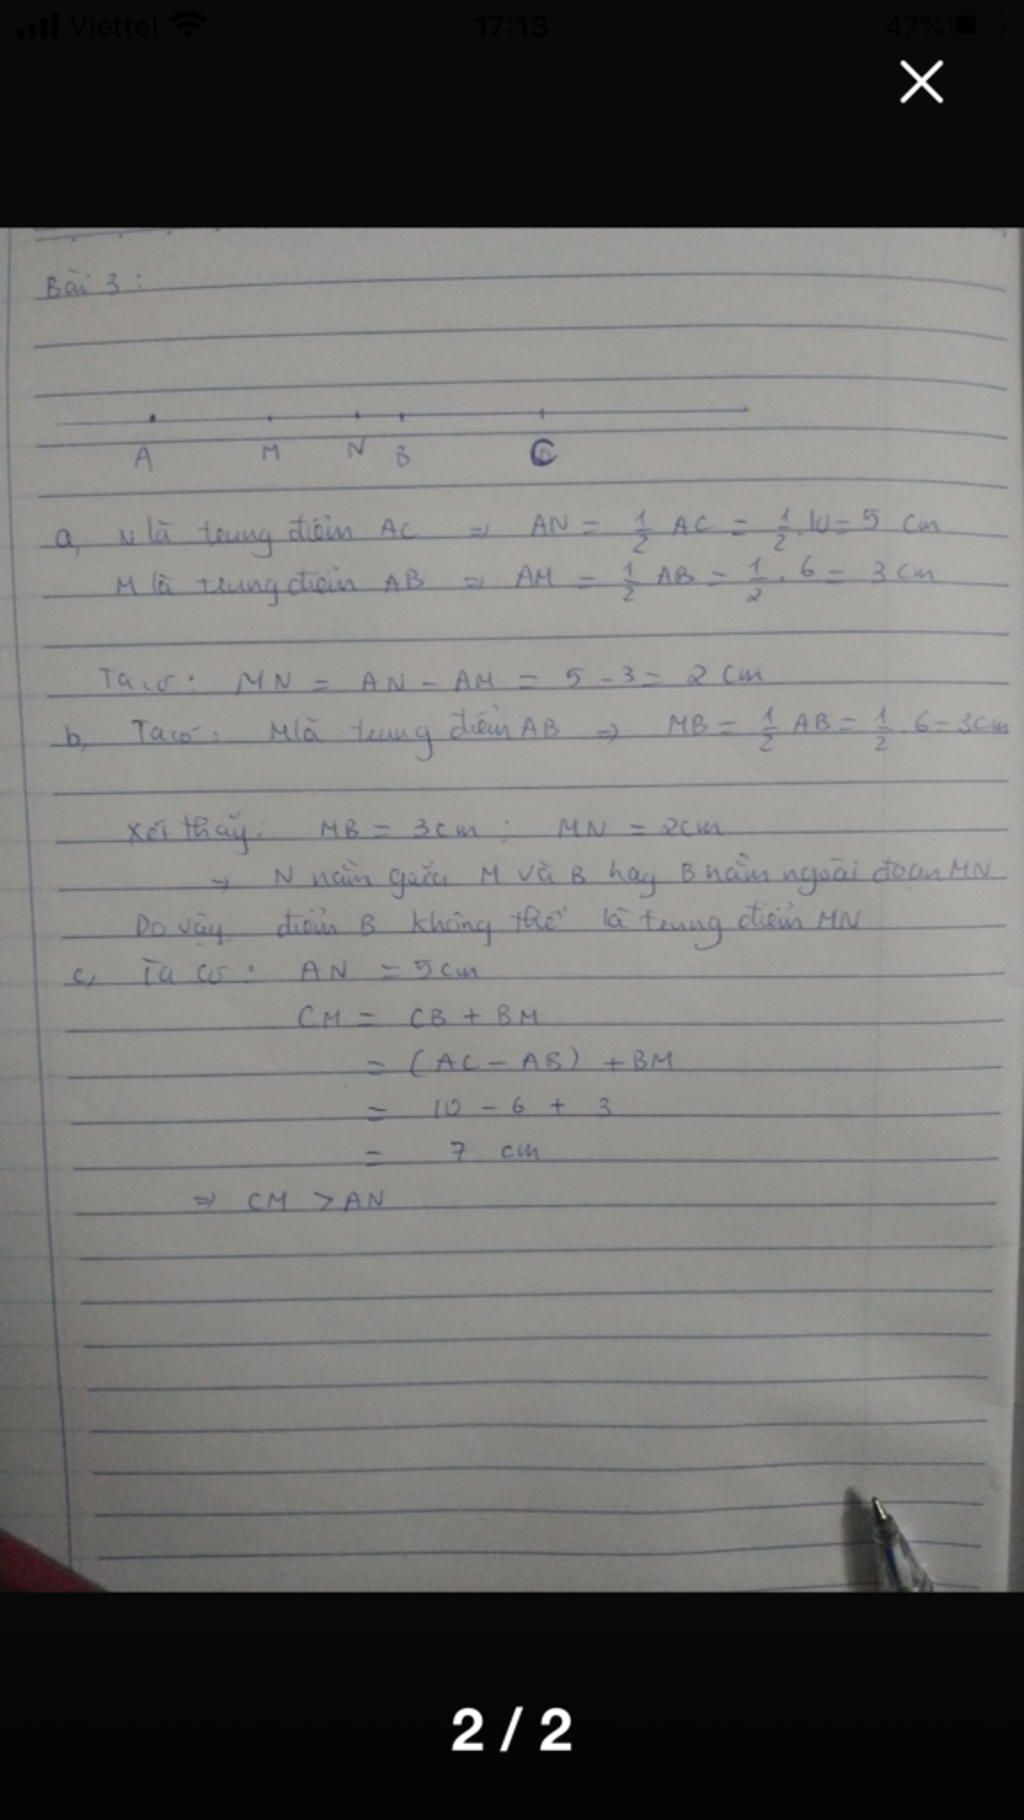 Viettel 17:13 47%
Bài 3:
A M N B C
a, N là trung điểm AC => AN = 1/2 AC = 1/2 . 10 = 5 cm
M là trung điểm AB => AM = 1/2 AB = 1/2 . 6 = 3 cm
Ta có: MN = AN - AM = 5 - 3 = 2 cm
b, Ta có: M là trung điểm AB => MB = 1/2 AB = 1/2 . 6 = 3cm
Xét thấy: MB = 3cm ; MN = 2cm
=> N nằm giữa M và B hay B nằm ngoài đoạn MN
Do vậy điểm B không thể là trung điểm MN
c, Ta có: AN = 5cm
CM = CB + BM
= (AC - AB) + BM
= 10 - 6 + 3
= 7 cm
=> CM > AN
2 / 2